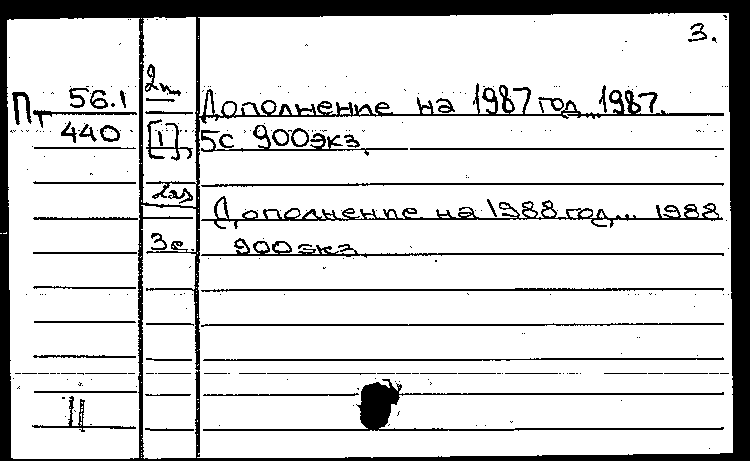 3.
Пт 56.1 2п. Дополнение на 1987 год... 1987.
440 [1], 5с 900экз.
2 экз
Дополнение на 1988 год... 1988
3с. 900экз.
11